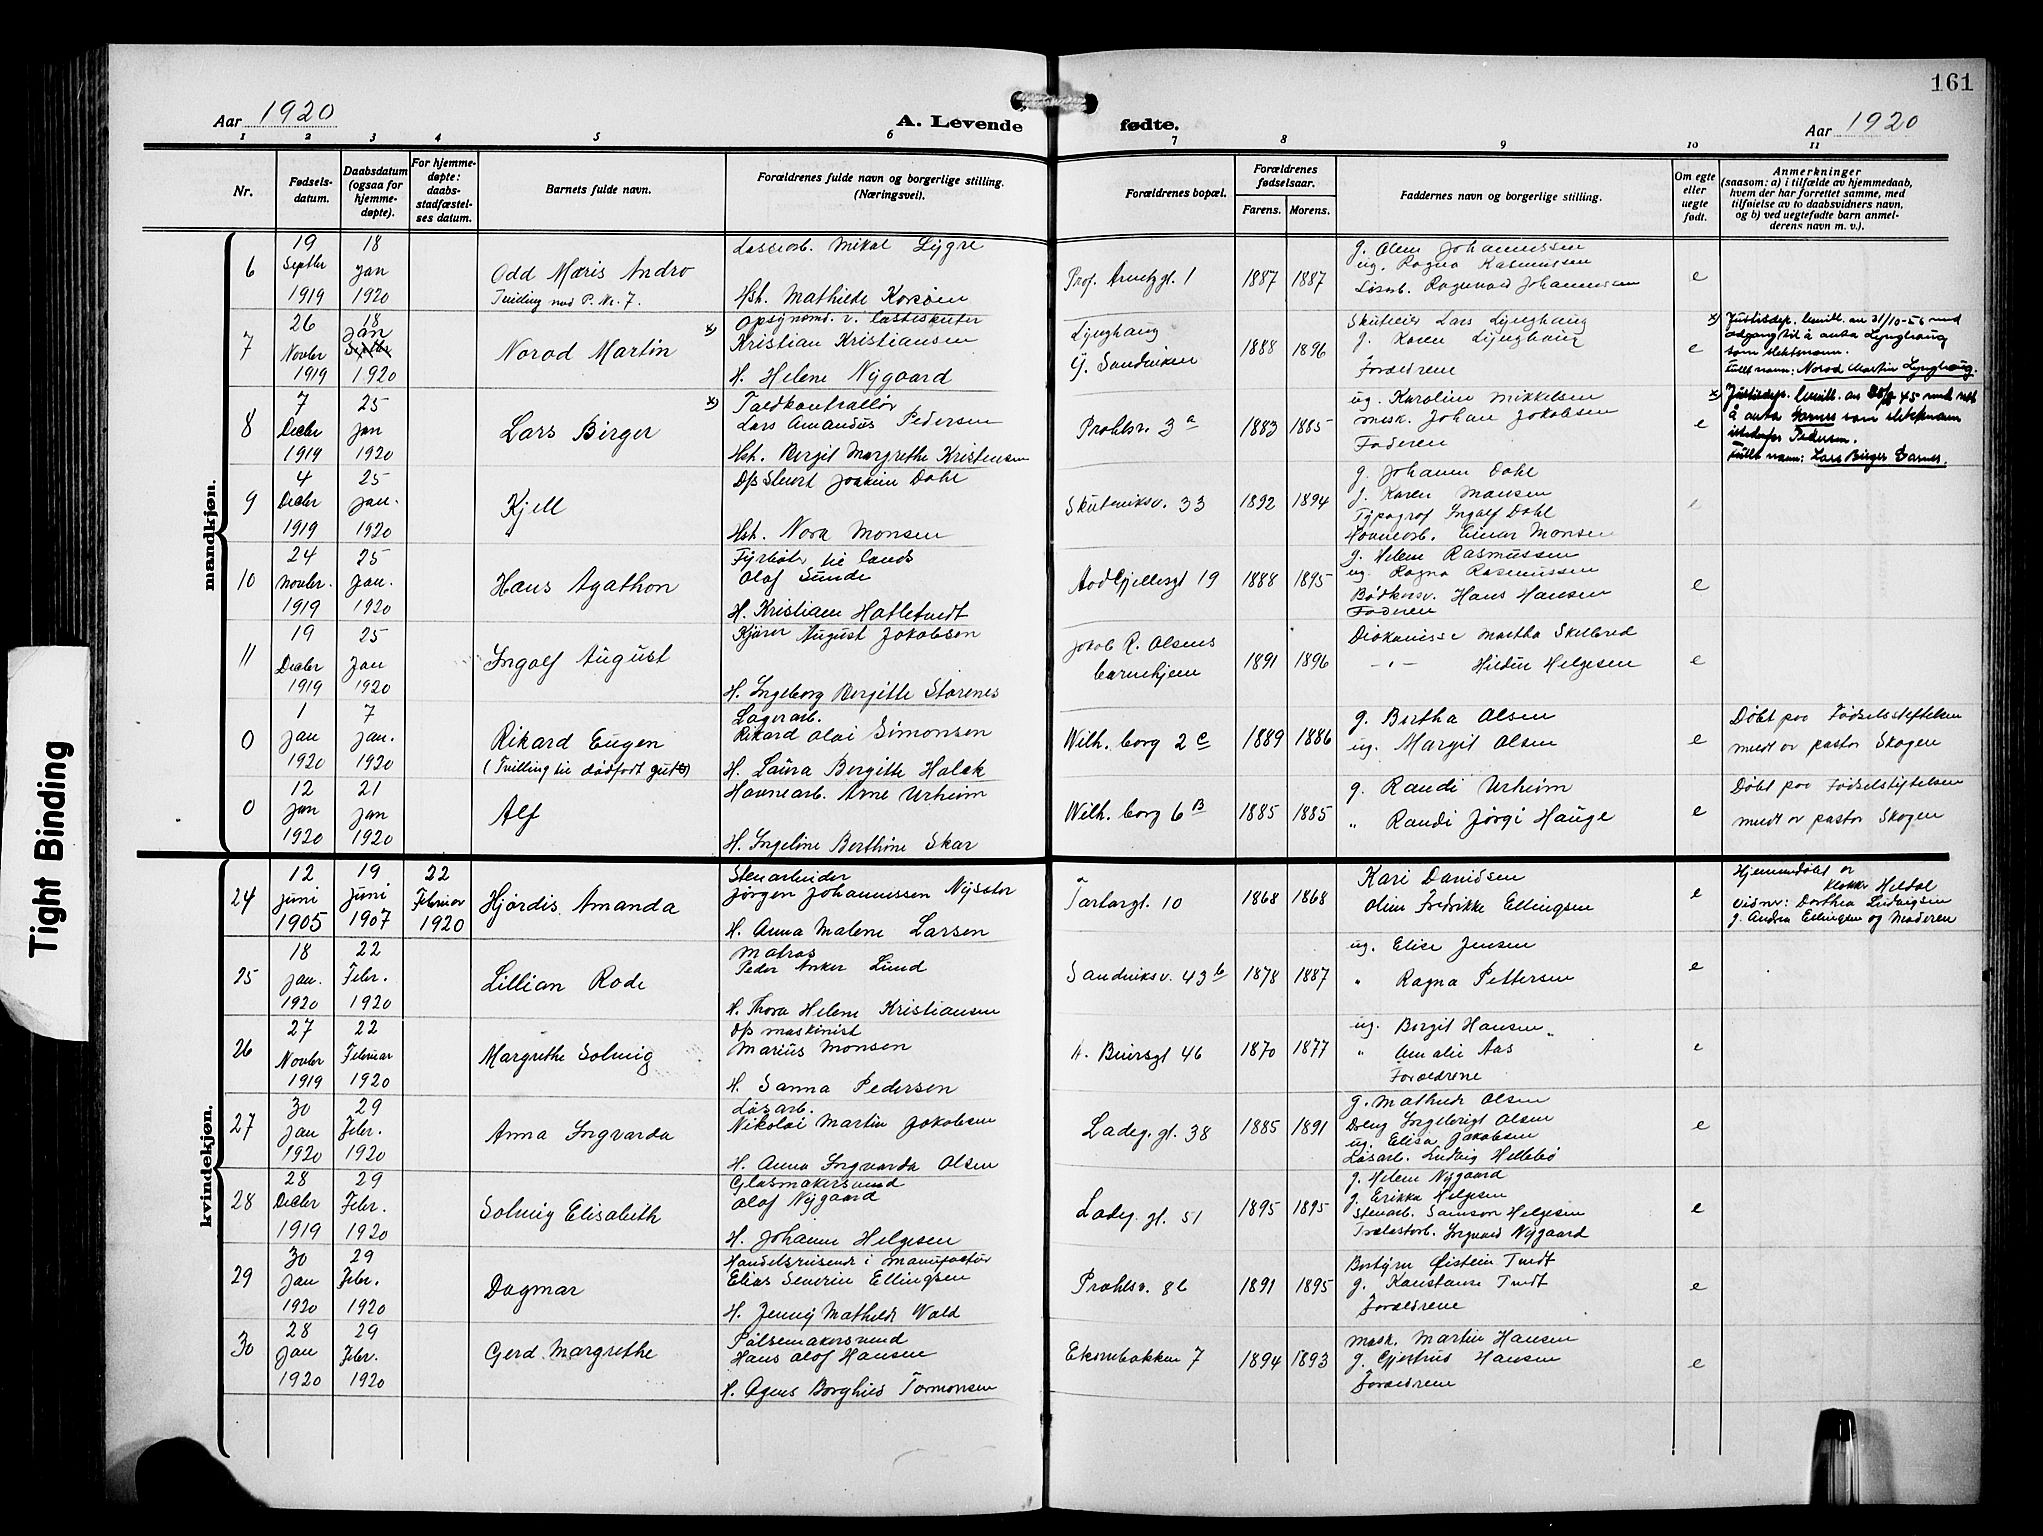 161
Aar 1920
A. Levende fødte.
Aar 1920
1 2 3 4 5 6 7 8 9 10 11
Nr.
Fødsels-
datum.
Daabsdatum
(ogsaa for
hjemme-
døpte).
For hjemme-
døpte:
daabs-
stadfæstel-
ses datum.
Barnets fulde navn.
Forældrenes fulde navn og borgerlige stilling.
(Næringsvei).
Forældrenes bopæl.
Forældrenes
fødselsaar.
Farens. Morens.
Faddernes navn og borgerlige stilling.
Om egte
eller
uegte
født.
Anmerkninger
(saasom: a) i tilfælde av hjemmedaab,
hvem der har forrettet samme, med
tilføielse av to daabsvidners navn,
og b) ved uegtefødte barn anmel-
derens navn m. v.).
mandkjøn.
6
19
Septbr
1919
18
Jan
1920
Odd Mæris Andro
Mikal Lygre
Hst. Mathilde
1 1887 1887
g. Olem Johannessen
ug. Ragna Rasmussen
Johannessen
e
7
26
Novbr
1919
18
Jan
1920
Norod Martin
x)
Kristian Kristiansen
H. Helene Nygaard
Lynghaug
G. Sandviken
1888 1896
Lars Lynghaug
g. Karen Lynghaug
Forældrene
e
x) Justisdep. bevilt. av 31/10-56 med
adgang til å anta Lynghaug
som slektsnavn.
Fullt navn: Norod Martin Lynghaug.
8
7
Decbr
1919
25
Jan
1920
Lars Birger
x)
Lars Amandus Pedersen
Hst. Bergit Margrethe Kristensen
Prahlsv. 3 a
1883 1885
ug. Karoline Mikkelsen
mask. Johan Jakobsen
Faderen
e
x) Justisdep. bevilt. av 45 med rett
å anta Garnes som slektsnavn
istedenfor Pedersen.
Fullt navn: Lars Birger Garnes.
9
4
Decbr
1919
25
Jan.
1920
Kjell
D/S Stuert Joakim Dahl
Hst. Nora Monsen
Skuteviksv. 33
1892 1894
g. Johanne Dahl
g. Karen Monsen
Typograf Ingolf Dahl
Havnearb. Einar Monsen
e
10
24
Novbr.
1919
25
Jan.
1920
Hans Agathon
Fyrbøter til lands
Olaf Sunde
H. Kristiane Hatletvedt
19 1888 1895
g. Helene Rasmussen
ug. Ragna Rasmussen
Bødkersv. Hans Hansen
Faderen
e
11
19
Decbr
1919
25
Jan
1920
Ingolf August
Kjører August Jakobsen
H. Ingeborg Bergitte Storenes
Jakob R. Olsens
barnehjem
1891 1896
Diakonisse Martha
-"- Helgesen
e
0
1
Jan
1920
7
Jan.
1920
Rikard Eugen
(Tvilling til dødfødt gut)
Lagerarb.
Rikard Olai Simonsen
H. Laura Bergitte
Wilh. borg 2 c
1889 1886
g. Bertha Olsen
ug. Margit Olsen
e
Døbt paa Fødselsstiftelsen
medt av pastor Skagen
0
12
Jan
1920
21
Jan
1920
Alf
Havnearb. Arne Urheim
H. Ingeline Berthine Skar
Wilh. borg 6 B
1885 1885
g. Randi Urheim
" Randi Jørgi Hauge
e
Døbt paa Fødselstiftelsen
medt av pastor Skagen
kvindekjøn.
24
12
Juni
1905
19
Juni
1907
22
Februar
1920
Hjørdis Amanda
Stenarbeider
Jørgen Johannissen Nysæter
H. Anna Malene Larsen
Tartargt. 10
1868 1868
Kari Davidsen
Oline Fredrikke Ellingsen
e
Hjemmedøbt av
klokker Hildal
vidner: Dorthea Ludvigsen
g. Andrea Ellingsen og Moderen
25
18
Jan.
1920
22
Febr.
1920
Lillian Rode
Matros
Peder Anker Lund
H. Thora Helene Kristiansen
Sandviksv. 43 b
1878 1887
ug. Elise Jensen
" Ragna Pettersen
e
26
27
Novbr
1919
22
Februar
1920
Margrethe Solveig
D/S maskinist
Marius Monsen
H. Sanna Pedersen
46 1870 1877
ug. Borgit Hansen
" Amalie Aas
Forældrene
e
27
30
Jan
1920
29
Febr.
1920
Anna Ingvarda
Løsarb.
Nikolai Martin Jakobsen
H. Anna Ingvarda Olsen
Ladeg. gt. 38
1885 1891
g. Mathilde Olsen
Ingebrigt Olsen
ug. Elisa Jakobsen
Løsarb. Ludvig Hellebø
e
28
28
Decbr
1919
29
Febr.
1920
Solveig Elisabeth
Glasmakersvend
Olaf Nygaard
H. Johanne Helgesen
Ladeg. gt. 51
1895 1895
g. Helene Nygaard
g. Erikka Helgesen
Stenarb. Samson Helgesen
Trælastarb. Ingvard Nygaard
e
29
30
Jan
1920
29
Febr.
1920
Dagmar
Handelsreisende i manufactur
Elias Severin Ellingsen
H. Jenny Mathilde Wald
Prahlsv. 8b
1891 1895
Bestyrer Øistein Tvedt
g. Konstanse Tvedt
Forældrene
e
30
28
Jan
1920
29
Febr.
1920
Gerd Margrethe
Pølsemakersvend
Hans Olaf Hansen
H. Agnes Borghild Tormonsen
Ekrenbakken 7
1894 1893
mask. Martin Hansen
g. Gjertrud Hansen
Forældrene
e
Tight Binding